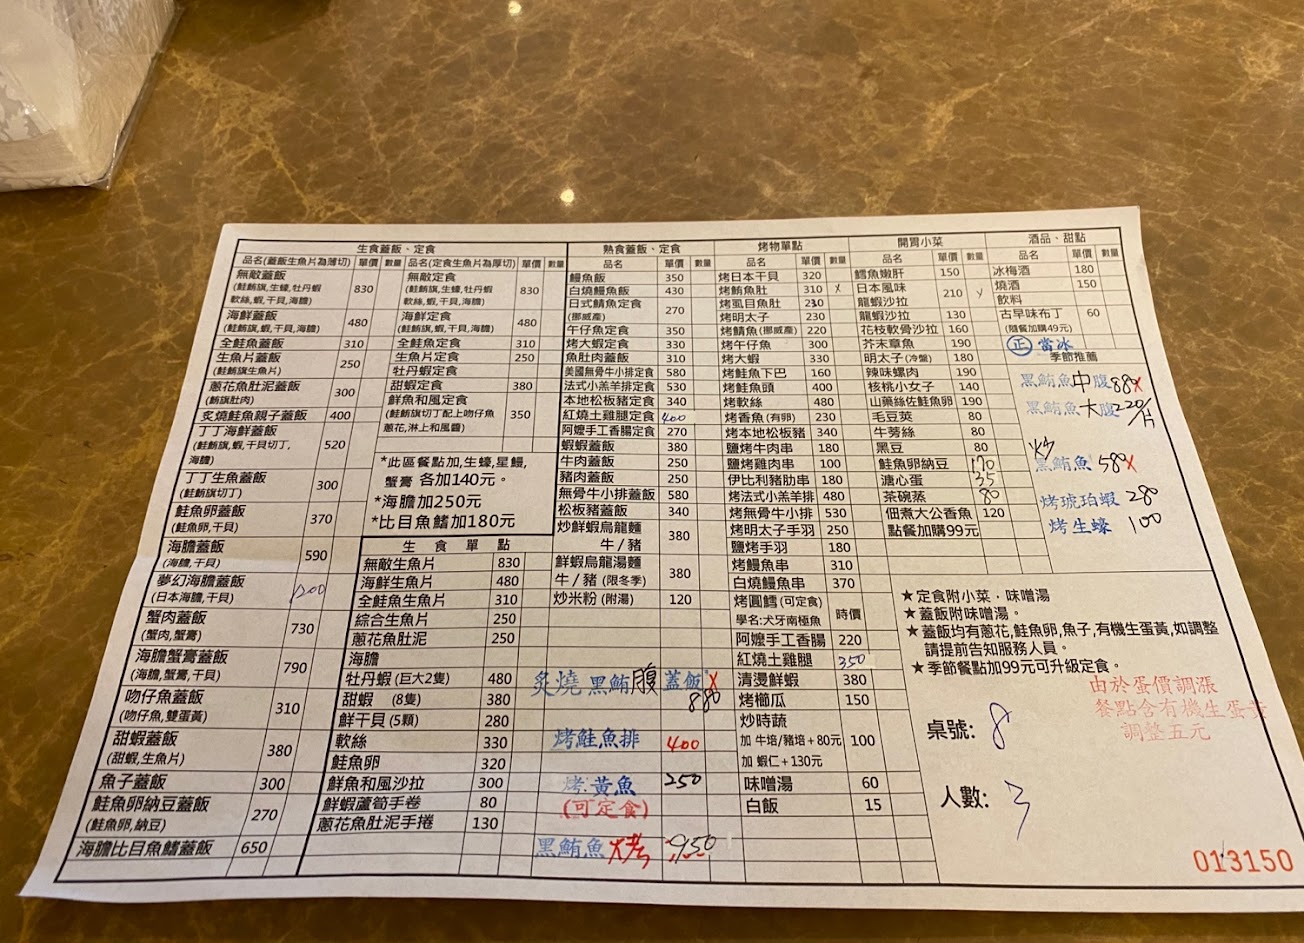 生食蓋飯、定食
品名(蓋飯生魚片為薄切) 單價 數量
無敵蓋飯 830
(鮭鮪旗,生蠔,牡丹蝦
軟絲,蝦,干貝,海膽)
海鮮蓋飯 480
(鮭鮪旗,蝦,干貝,海膽)
全鮭魚蓋飯 310
生魚片蓋飯 250
(鮭鮪旗生魚片)
蔥花魚肚泥蓋飯 300
(鮪旗肚肉)
炙燒鮭魚親子蓋飯 400
丁丁海鮮蓋飯 520
(鮭鮪旗,蝦,干貝切丁,
海膽)
丁丁生魚蓋飯 300
(鮭鮪旗切丁)
鮭魚卵蓋飯 370
(鮭魚卵,干貝)
海膽蓋飯 590
(海膽,干貝)
夢幻海膽蓋飯 1200
(日本海膽,干貝)
蟹肉蓋飯 730
(蟹肉,蟹膏)
海膽蟹膏蓋飯 790
(海膽,蟹膏,干貝)
吻仔魚蓋飯 310
(吻仔魚,雙蛋黃)
甜蝦蓋飯 380
(甜蝦,生魚片)
魚子蓋飯 300
鮭魚卵納豆蓋飯 270
(鮭魚卵,納豆)
海膽比目魚鰭蓋飯 650
品名(定食生魚片為厚切) 單價 數量
無敵定食 830
(鮭鮪旗,生蠔,牡丹蝦
軟絲,蝦,干貝,海膽)
海鮮定食 480
(鮭鮪旗,蝦,干貝,海膽)
全鮭魚定食 310
生魚片定食 250
牡丹蝦定食
甜蝦定食 380
鮮魚和風定食 350
(鮭鮪旗切丁配上吻仔魚
蔥花,淋上和風醬)
*此區餐點加,生蠔,星鰻,
蟹膏 各加140元。
*海膽加250元
*比目魚鰭加180元
生 食 單 點
無敵生魚片 830
海鮮生魚片 480
全鮭魚生魚片 310
綜合生魚片 250
蔥花魚肚泥 250
海膽
牡丹蝦 (巨大2隻) 480
甜蝦 (8隻) 380
鮮干貝 (5顆) 280
軟絲 330
鮭魚卵 320
鮮魚和風沙拉 300
鮮蝦蘆筍手卷 80
蔥花魚肚泥手捲 130
熟食蓋飯、定食
品名 單價 數量
鰻魚飯 350
白燒鰻魚飯 430
日式鯖魚定食 270
(挪威產)
午仔魚定食 350
烤大蝦定食 330
魚肚肉蓋飯 310
美國無骨牛小排定食 580
法式小羔羊排定食 530
本地松板豬定食 340
紅燒土雞腿定食 400
阿嬤手工香腸定食 270
蝦蝦蓋飯 380
牛肉蓋飯 250
豬肉蓋飯 250
無骨牛小排蓋飯 580
松板豬蓋飯 340
炒鮮蝦烏龍麵 380
牛/豬
鮮蝦烏龍湯麵 380
牛/豬 (限冬季)
炒米粉 (附湯) 120
炙燒 黑鮪腹 蓋飯 X
880
烤鮭魚排 400
烤.黃魚 250
(可定食)
黑鮪魚 烤 950
烤物單點
品名 單價 數量
烤日本干貝 320
烤鮪魚肚 310 x
烤虱目魚肚 230
烤明太子 230
烤鯖魚 (挪威產) 220
烤午仔魚 300
烤大蝦 330
烤鮭魚下巴 160
烤鮭魚頭 400
烤軟絲 480
烤香魚 (有卵) 230
烤本地松板豬 340
鹽烤牛肉串 180
鹽烤雞肉串 100
伊比利豬肋串 180
烤法式小羔羊排 480
烤無骨牛小排 530
烤明太子手羽 250
鹽烤手羽 180
烤鰻魚串 310
白燒鰻魚串 370
烤圓鱈 (可定食) 時價
學名:犬牙南極魚
阿嬤手工香腸 220
紅燒土雞腿 350
清燙鮮蝦 380
烤櫛瓜 150
炒時蔬 100
加 牛培/豬培+80元
加 蝦仁+130元
味噌湯 60
白飯 15
開胃小菜
品名 單價 數量
鱈魚嫩肝 150
日本風味 210
龍蝦沙拉
龍蝦沙拉 130
花枝軟骨沙拉 160
芥末章魚 190
明太子 (冷盤) 180
辣味螺肉 190
核桃小女子 140
山藥絲佐鮭魚卵 190
毛豆莢 80
牛蒡絲 80
黑豆 80
鮭魚卵納豆 170
溏心蛋 35
茶碗蒸 80
佃煮大公香魚 120
點餐加購99元
酒品、甜點
品名 單價 數量
冰梅酒 180
燒酒 150
飲料
古早味布丁 60
(隨餐加購49元)
正 當冰
季節推薦
黑鮪魚中腹 880 X
黑鮪魚大腹 220/片
炒
黑鮪魚 580 X
烤琥珀蝦 280
烤生蠔 100
★定食附小菜.味噌湯
★蓋飯附味噌湯。
★蓋飯均有蔥花,鮭魚卵,魚子,有機生蛋黃,如調整
請提前告知服務人員。
★季節餐點加99元可升級定食。
由於蛋價調漲
餐點含有機生蛋黃
調整五元
桌號: 8
人數: 3
013150